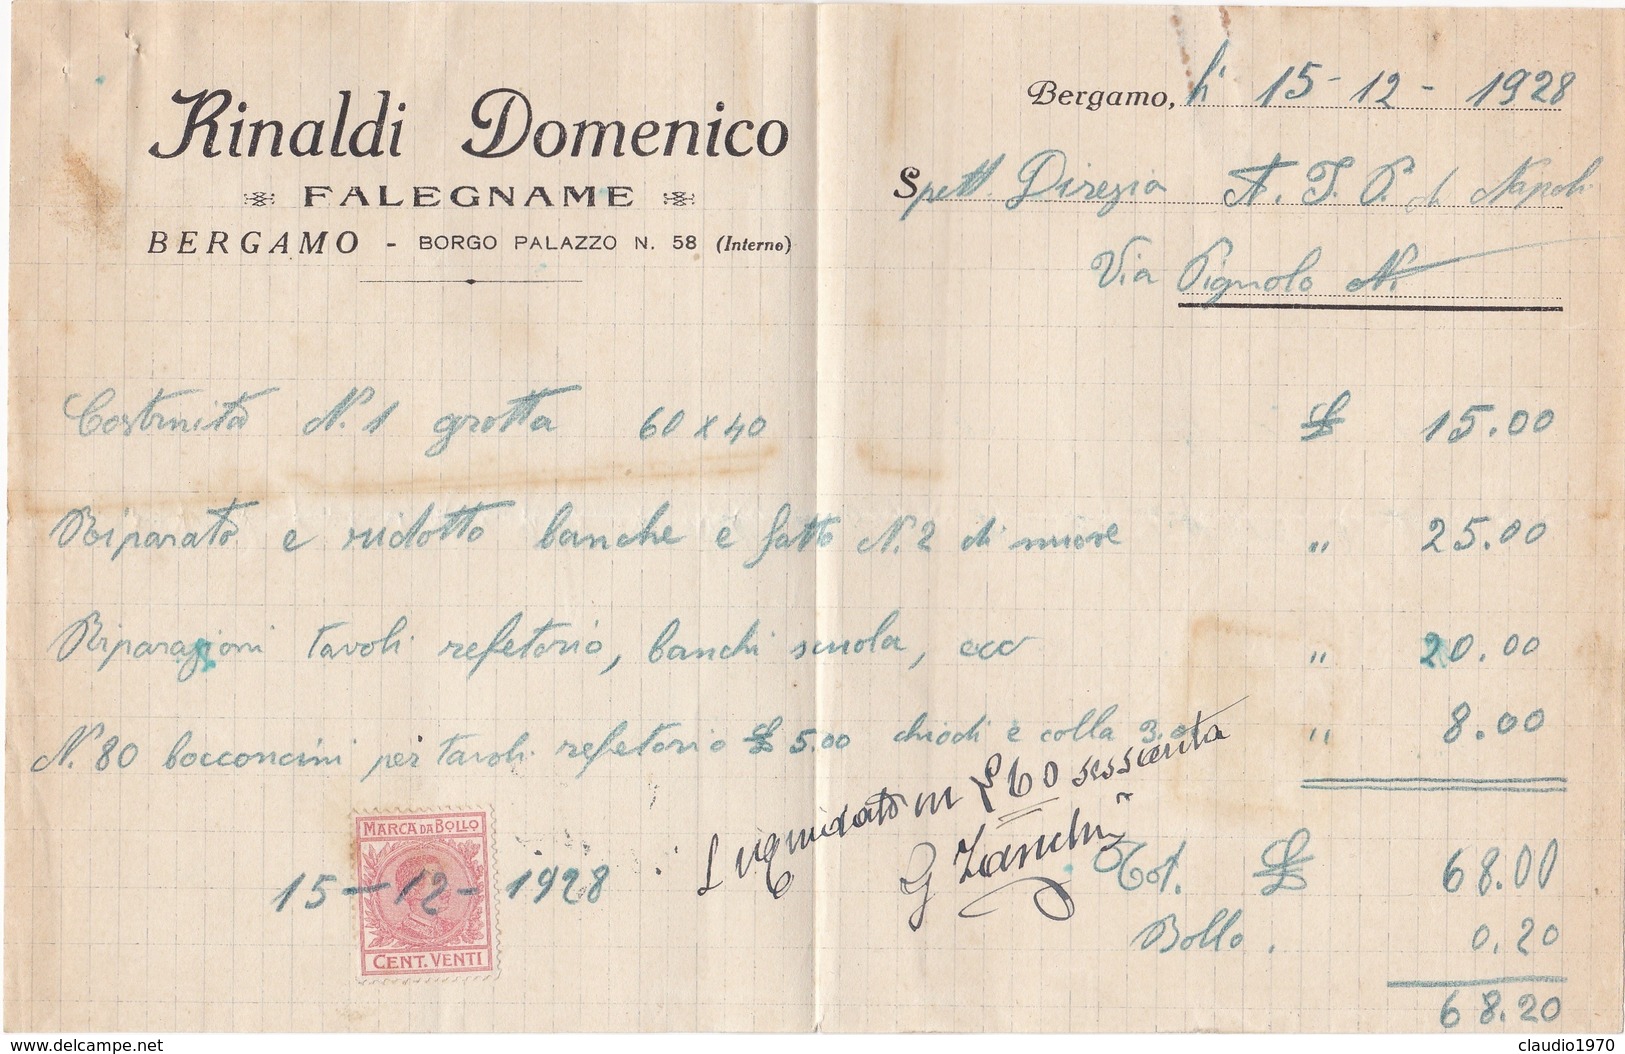 Rinaldi Domenico
FALEGNAME
BERGAMO - BORGO PALAZZO N. 58 (Interno)
Bergamo, li 15-12-1928
Spett. Direzia A. T. P. di Napoli
Via Pignolo N.
Costruita N. 1 grotta 60 x 40 £ 15.00
Riparato e ridotto banche e fatto N. 2 di nuove " 25.00
Riparazioni tavoli refetorio, banchi scuola, ecc " 20.00
N. 80 bocconcini per tavoli refetorio £ 5.00 chiodi e colla 3.0 " 8.00
Liquidato in £ 60 sessanta
G Zanchi
MARCA DA BOLLO
15-12-1928
CENT. VENTI
Tot. £ 68.00
Bollo. 0.20
68.20
www.delcampe.net
claudio1970